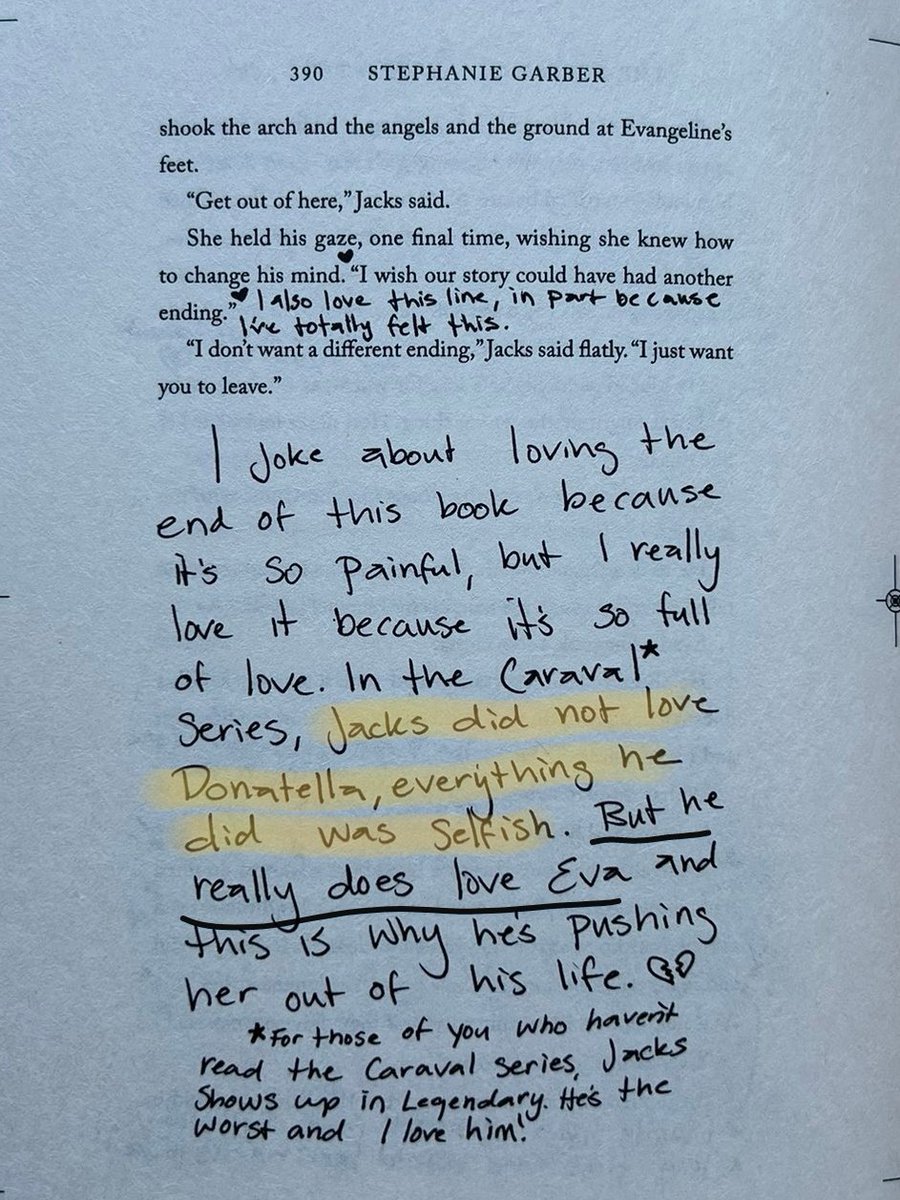 390 STEPHANIE GARBER
shook the arch and the angels and the ground at Evangeline's
feet.
"Get out of here," Jacks said.
She held his gaze, one final time, wishing she knew how
to change his mind. "I wish our story could have had another
ending." ♥ I also love this line, in part because
I've totally felt this.
"I don't want a different ending," Jacks said flatly. "I just want
you to leave."
I joke about loving the
end of this book because
it's so painful, but I really
love it because it's so full
of love. In the Caraval*
Series, Jacks did not love
Donatella, everything he
did was selfish. But he
really does love Eva and
this is why he's pushing
her out of his life.
*For those of you who haven't
read the Caraval series, Jacks
shows up in Legendary. He's the
worst and I love him!